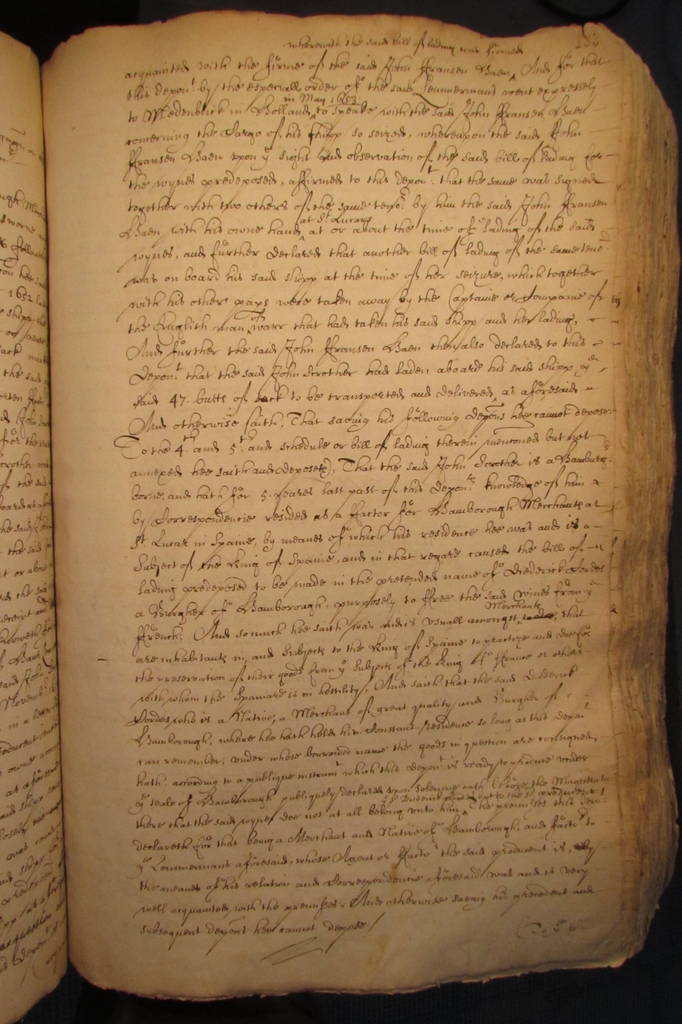 wherewith the said bill of lading was firmed
acquainted with the firme of the said John Fransen Baen, And for that
this depon.t by the especiall order of the said Lemmermans went expressely
in May 1652
to Medenblick in Holland to speake with the said John Fransen Baen
concerning the Cargo of his shipp so seized, whereupon the said John
Fransen Baen upon y.e sight and observation of the said bills of lading for
the wynes predeposed, affirmed to this depon.t that the same was signed
together with two others of the same teno.r by him the said John Fransen
at S.t Lucars
Baen with his owne hand, at or about the time of y.e lading of the said
wynes, and further declared that another bill of lading of the same teno.r
was on board his said shipp at the time of her seizure, which together
with his other papers were taken away by the Captaine or Companie of
the English man of warr that had taken his said shipp and her lading,
And further the said John Fransen Baen then also declared to this
depon.t that the said John Scrother had laden aboard his said shipp y.e
said 47 butts of sack to be transported and delivered, as aforesaid
And otherwise saith, That saving his following depo.ns hee cannot depose
To the 4.th and 5.th and schedule or bill of lading therein mentioned but not
annexed hee saith and deposeth, That the said John Scrother is a Hamburg
borne, and hath for 5 yeares last past of this depon.ts knowledge of him
by Correspondencie resided as a factor for Hamborough Merchants at
S.t Lucar in Spaine, by meanes of which his residence hee was and is a
Subject of the King of Spaine, and in that regard caused the bills of
lading predeposed to be made in the pretended name of Diederick Dordes
a Burgher of Hamborough, purposely to free the said wines from y.e
Merchants
French. And so much hee saith was and is usuall amongst that
are inhabitants in, and Subjects to the King of Spaine to practize and doe for
the preservation of their goods from y.e subjects of the King of France or others
with whom the Spaniard is in hostility, And saith that the said Diderick
Dordes who is a Native, a Merchant of great quality and Burgher of
Hamborough, where hee hath held his Constant residence so long as this depon.t
can remember, under whose borrowed name the goods in question are consigned,
hath according to a publique instrum.t which this depon.t is ready to produce under
y.e seale of Hamborough publiquely declared upon solemne oath before the Magistrate
there that the said wynes doe not at all belong unto him, the premisses this depon.t
declareth for that being a Merchant and Native of Hamborough, and facto.r to
y.e Lemmermans aforesaid, whose Agent or Facto.r the said producent is, by
the meanes of his relation and Correspondence aforesaid was and is very
well acquainted with the premisses, And otherwise saving his precedent and
subsequent depo.ns hee cannot depose./